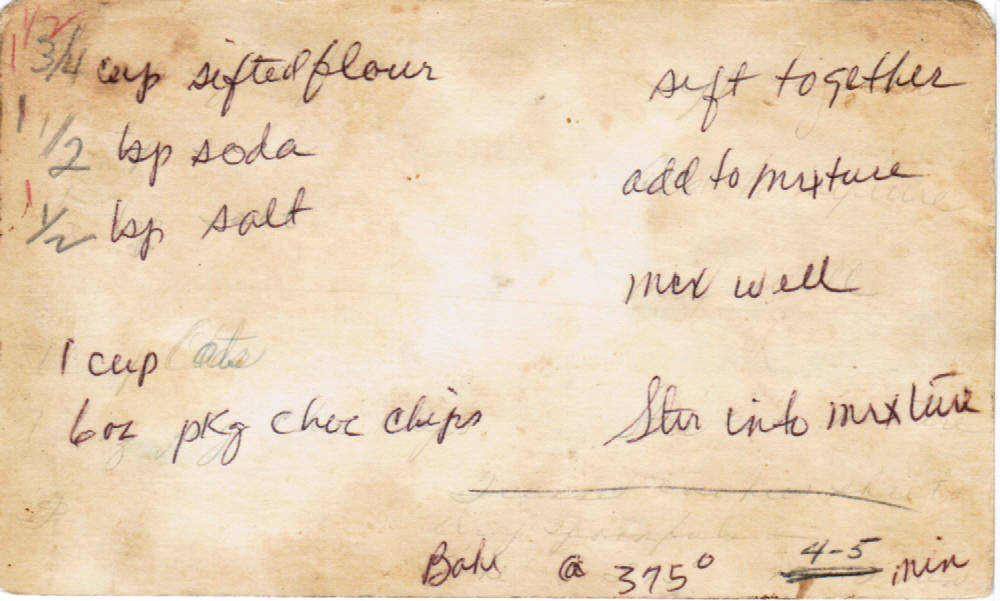 1 1/2
3/4 cup sifted flour sift together
1 1/2 tsp soda add to mixture
1
1/2 tsp salt
mix well
1 cup Oats
6 oz pkg choc chips Stir into mixture
Bake @ 375° 4-5 min